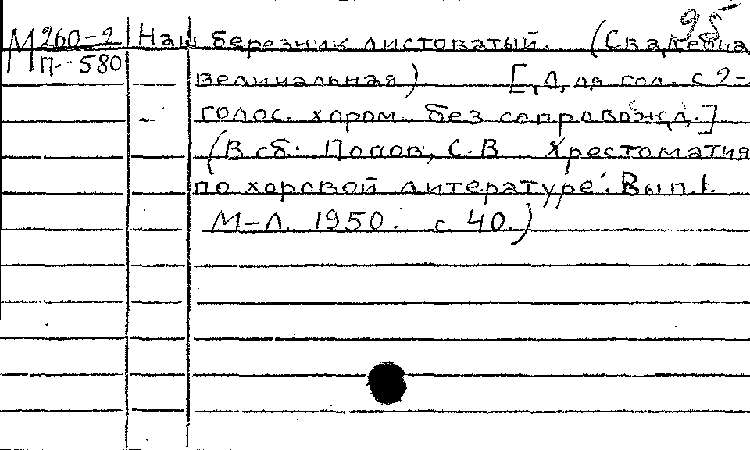 95
М 260-2 Наш березник листоватый. (Свадебна
П-580 величальная) [Для гол. с 2-
голос. хором без сопровожд.]
(В сб: Попов, С.В Хрестоматия
по хоровой литературе. Вып.1.
М-Л. 1950. с 40.)